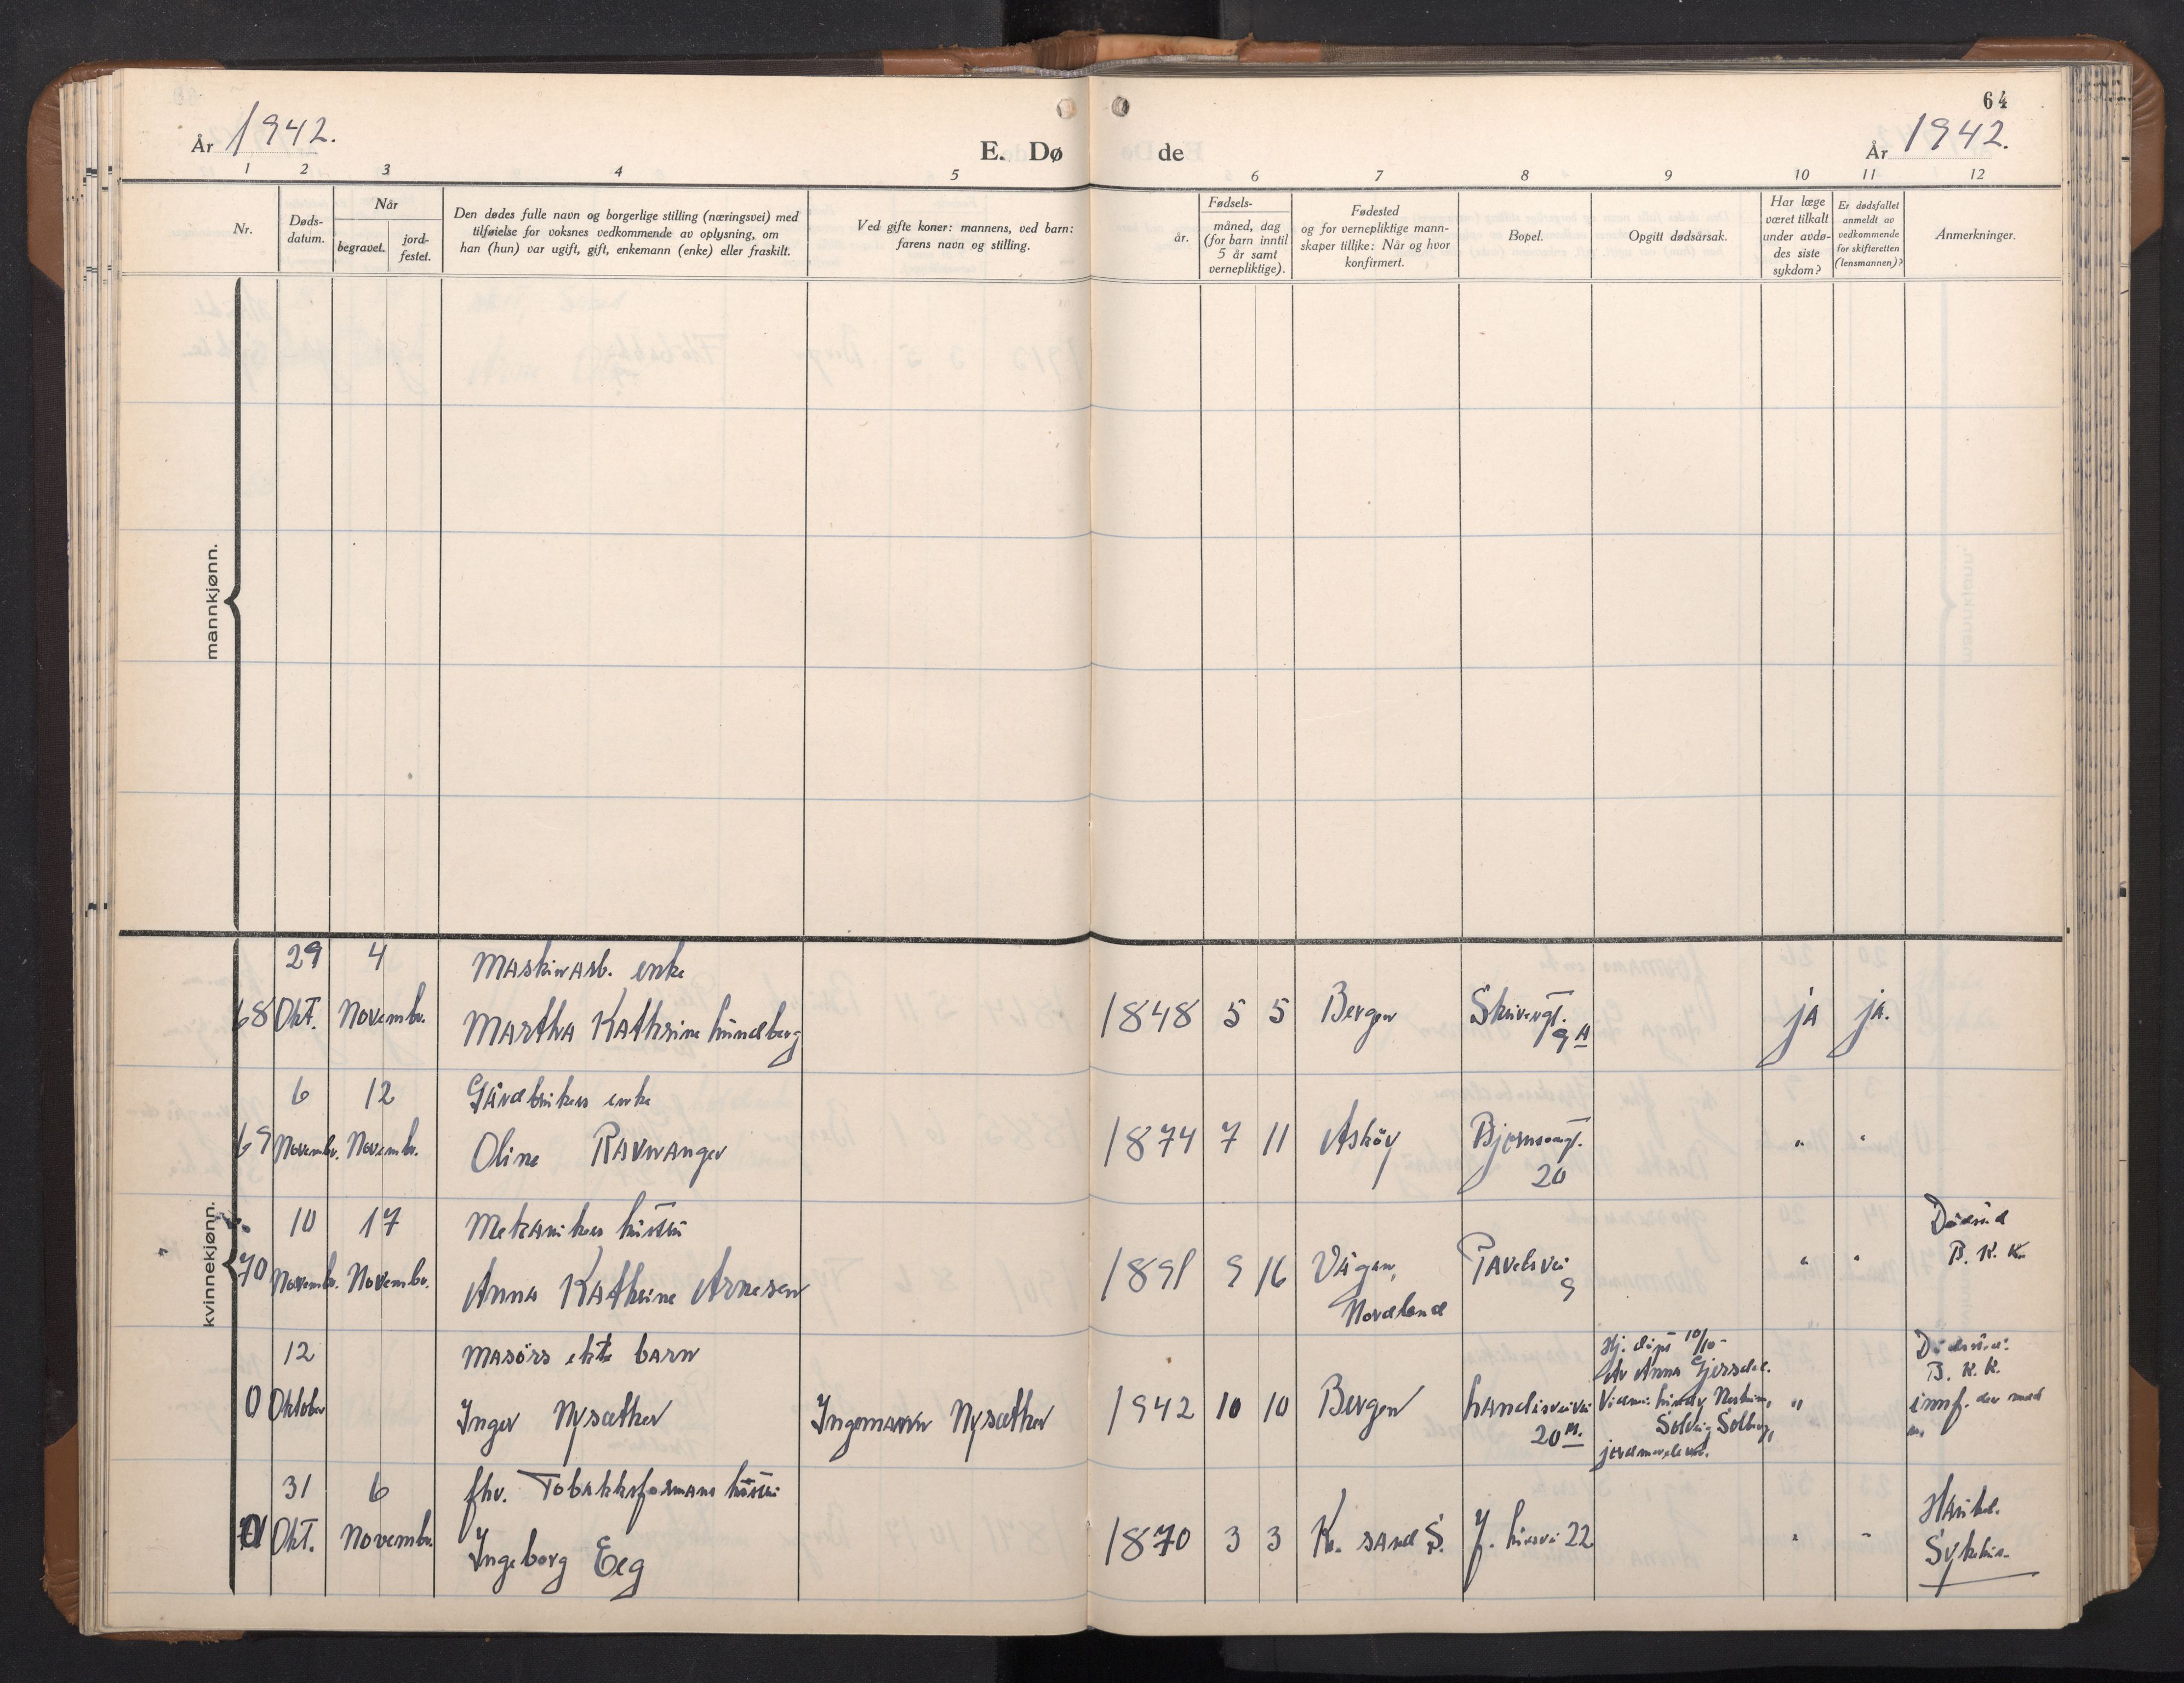 64
År 1942.
E. Dø
de
År 1942.
1 2 3 4 5 6 7 8 9 10 11 12
Nr.
Døds-
datum.
Når
begravet.
jord-
festet.
Den dødes fulle navn og borgerlige stilling (næringsvei) med
tilføielse for voksnes vedkommende av oplysning, om
han (hun) var ugift, gift, enkemann (enke) eller fraskilt.
Ved gifte koner: mannens, ved barn:
farens navn og stilling.
Fødsels-
år.
måned, dag
(for barn inntil
5 år samt
vernepliktige).
Fødested
og for vernepliktige mann-
skaper tillike: Når og hvor
konfirmert.
Bopel.
Opgitt dødsårsak.
Har læge
været tilkalt
under avdø-
des siste
sykdom?
Er dødsfallet
anmeldt av
vedkommende
for skifteretten
(lensmannen)?
Anmerkninger.
mannkjønn.
kvinnekjønn.
29 4 Maskinarb. enke
68 Okt. Novembr. Martha Kathrine Lundberg 1848 5 5 Bergen Skrivergt. ja ja.
9 A
6 12 Gårdbrukers enke
69 Novembr. Novembr. Oline Ravnanger 1874 7 11 Askøy Bjørnsonsgt. " "
20
10 17 Mekanikers hustru Dødsted
B. K. K.
70 Novembr. Novembr. Anna Kathrine Arnesen 1891 9 16 Vågan, " "
Nordland 9
12 Masørs ekte barn Hj. døpt 10/10
Av Anna Gjersdal. B. K. K.
0 Oktober Inger Nysæther Ingemann Nysæther 1942 10 10 Bergen "
20 M. Solveig Solberg,
31 6 fhv. Tobakksformans hustru
Haukel.
Okt. Novembr. Ingeborg Eeg 1870 3 3 Kr. sand S. 22 " "
Sykehus.